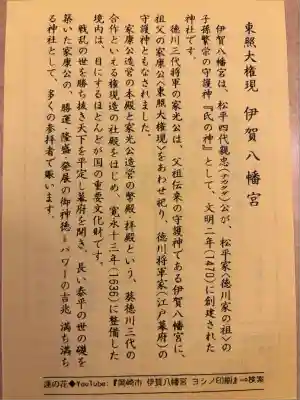 東照大権現　伊賀八幡宮
伊賀八幡宮は、松平四代親忠(チカタダ)公が、松平家〈徳川家の祖〉の
子孫繁栄の守護神『氏の神』として、文明二年(1470)に創建された
神社です。
徳川三代将軍の家光公は、父祖伝来の守護神である伊賀八幡宮に、
祖父の家康公〈東照大権現〉をあわせ祀り、徳川将軍家〈江戸幕府〉の
守護神ともなされました。
家康公造営の本殿と家光公造営の幣殿・拝殿という、葵徳川三代の
合作といえる権現造の社殿をはじめ、寛永十三年(1636)に整備した
境内は、目にするほとんどが国の重要文化財です。
戦乱の世を勝ち抜き天下を平定し幕府を開き、長い泰平の世の礎を
築いた家康公の、勝運・隆盛・発展の御神徳=パワーの吉兆 満ち満ち
る神社として、多くの参拝者で賑います。
蓮の花◆YouTube:『岡崎市 伊賀八幡宮 ヨシノ印刷』⇒検索